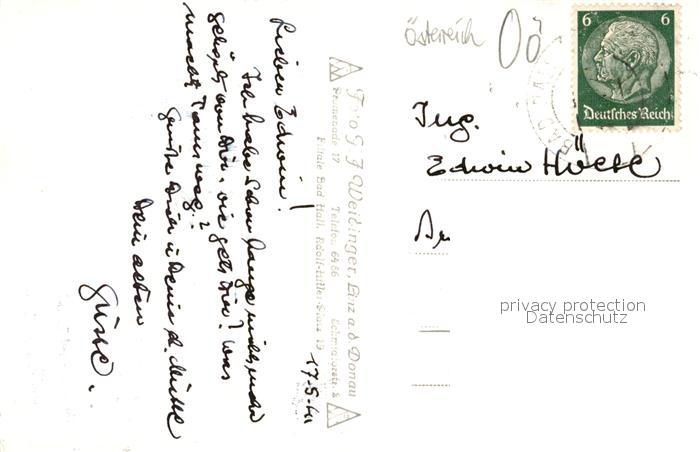 Österreich
OÖ
6 6
Deutsches Reich
BAD HALL
Ing.
Edwin
An
privacy protection
Datenschutz
Foto J. Weidinger, Linz a. d. Donau
Promenade 17 Telefon 6466
Filiale Bad Hall, Adolf-Hitler-Platz 19
17.5.41
Lieber Edwin!
Ich habe schon lange nichts mehr
gehört von Dir, wie geht's Dir? Was
macht Tamsweg?
Grüße Dir u. Deine
Dein alter